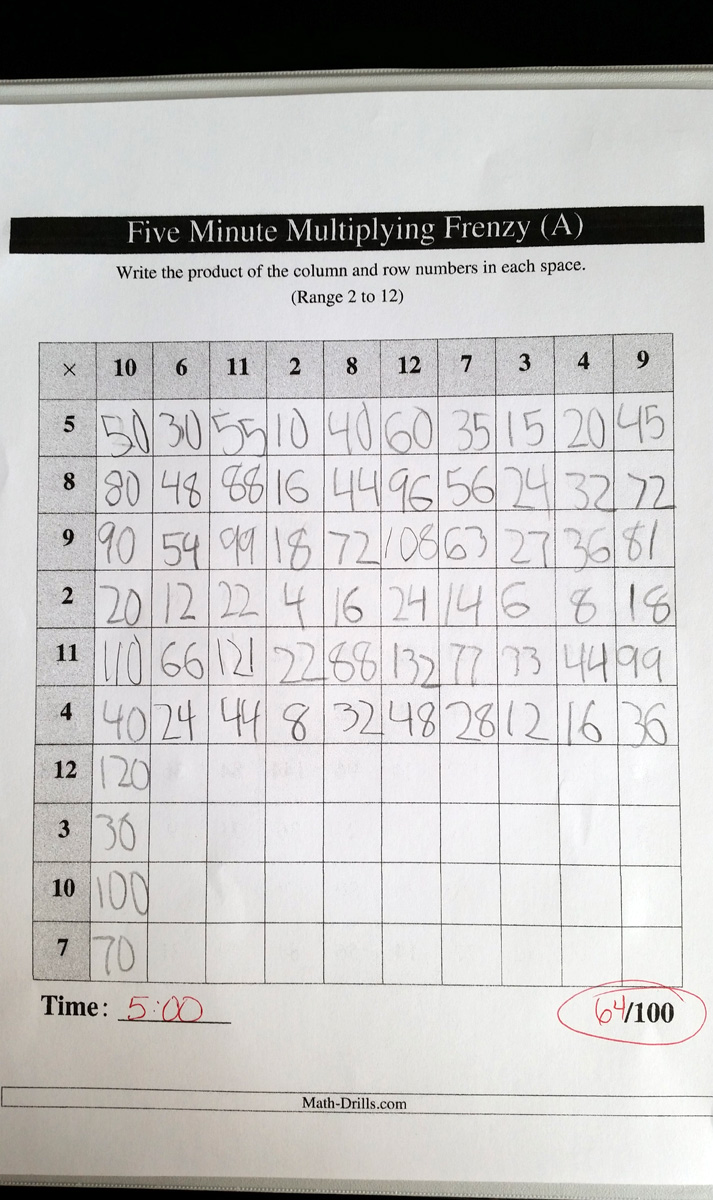 Five Minute Multiplying Frenzy (A)
Write the product of the column and row numbers in each space.
(Range 2 to 12)
× 10 6 11 2 8 12 7 3 4 9
5 50 30 55 10 40 60 35 15 20 45
8 80 48 88 16 44 96 56 24 32 72
9 90 54 99 18 72 108 63 27 36 81
2 20 12 22 4 16 24 14 6 8 18
11 110 66 121 22 88 132 77 33 44 99
4 40 24 44 8 32 48 28 12 16 36
12 120
3 30
10 100
7 70
Time: 5:00 64/100
Math-Drills.com